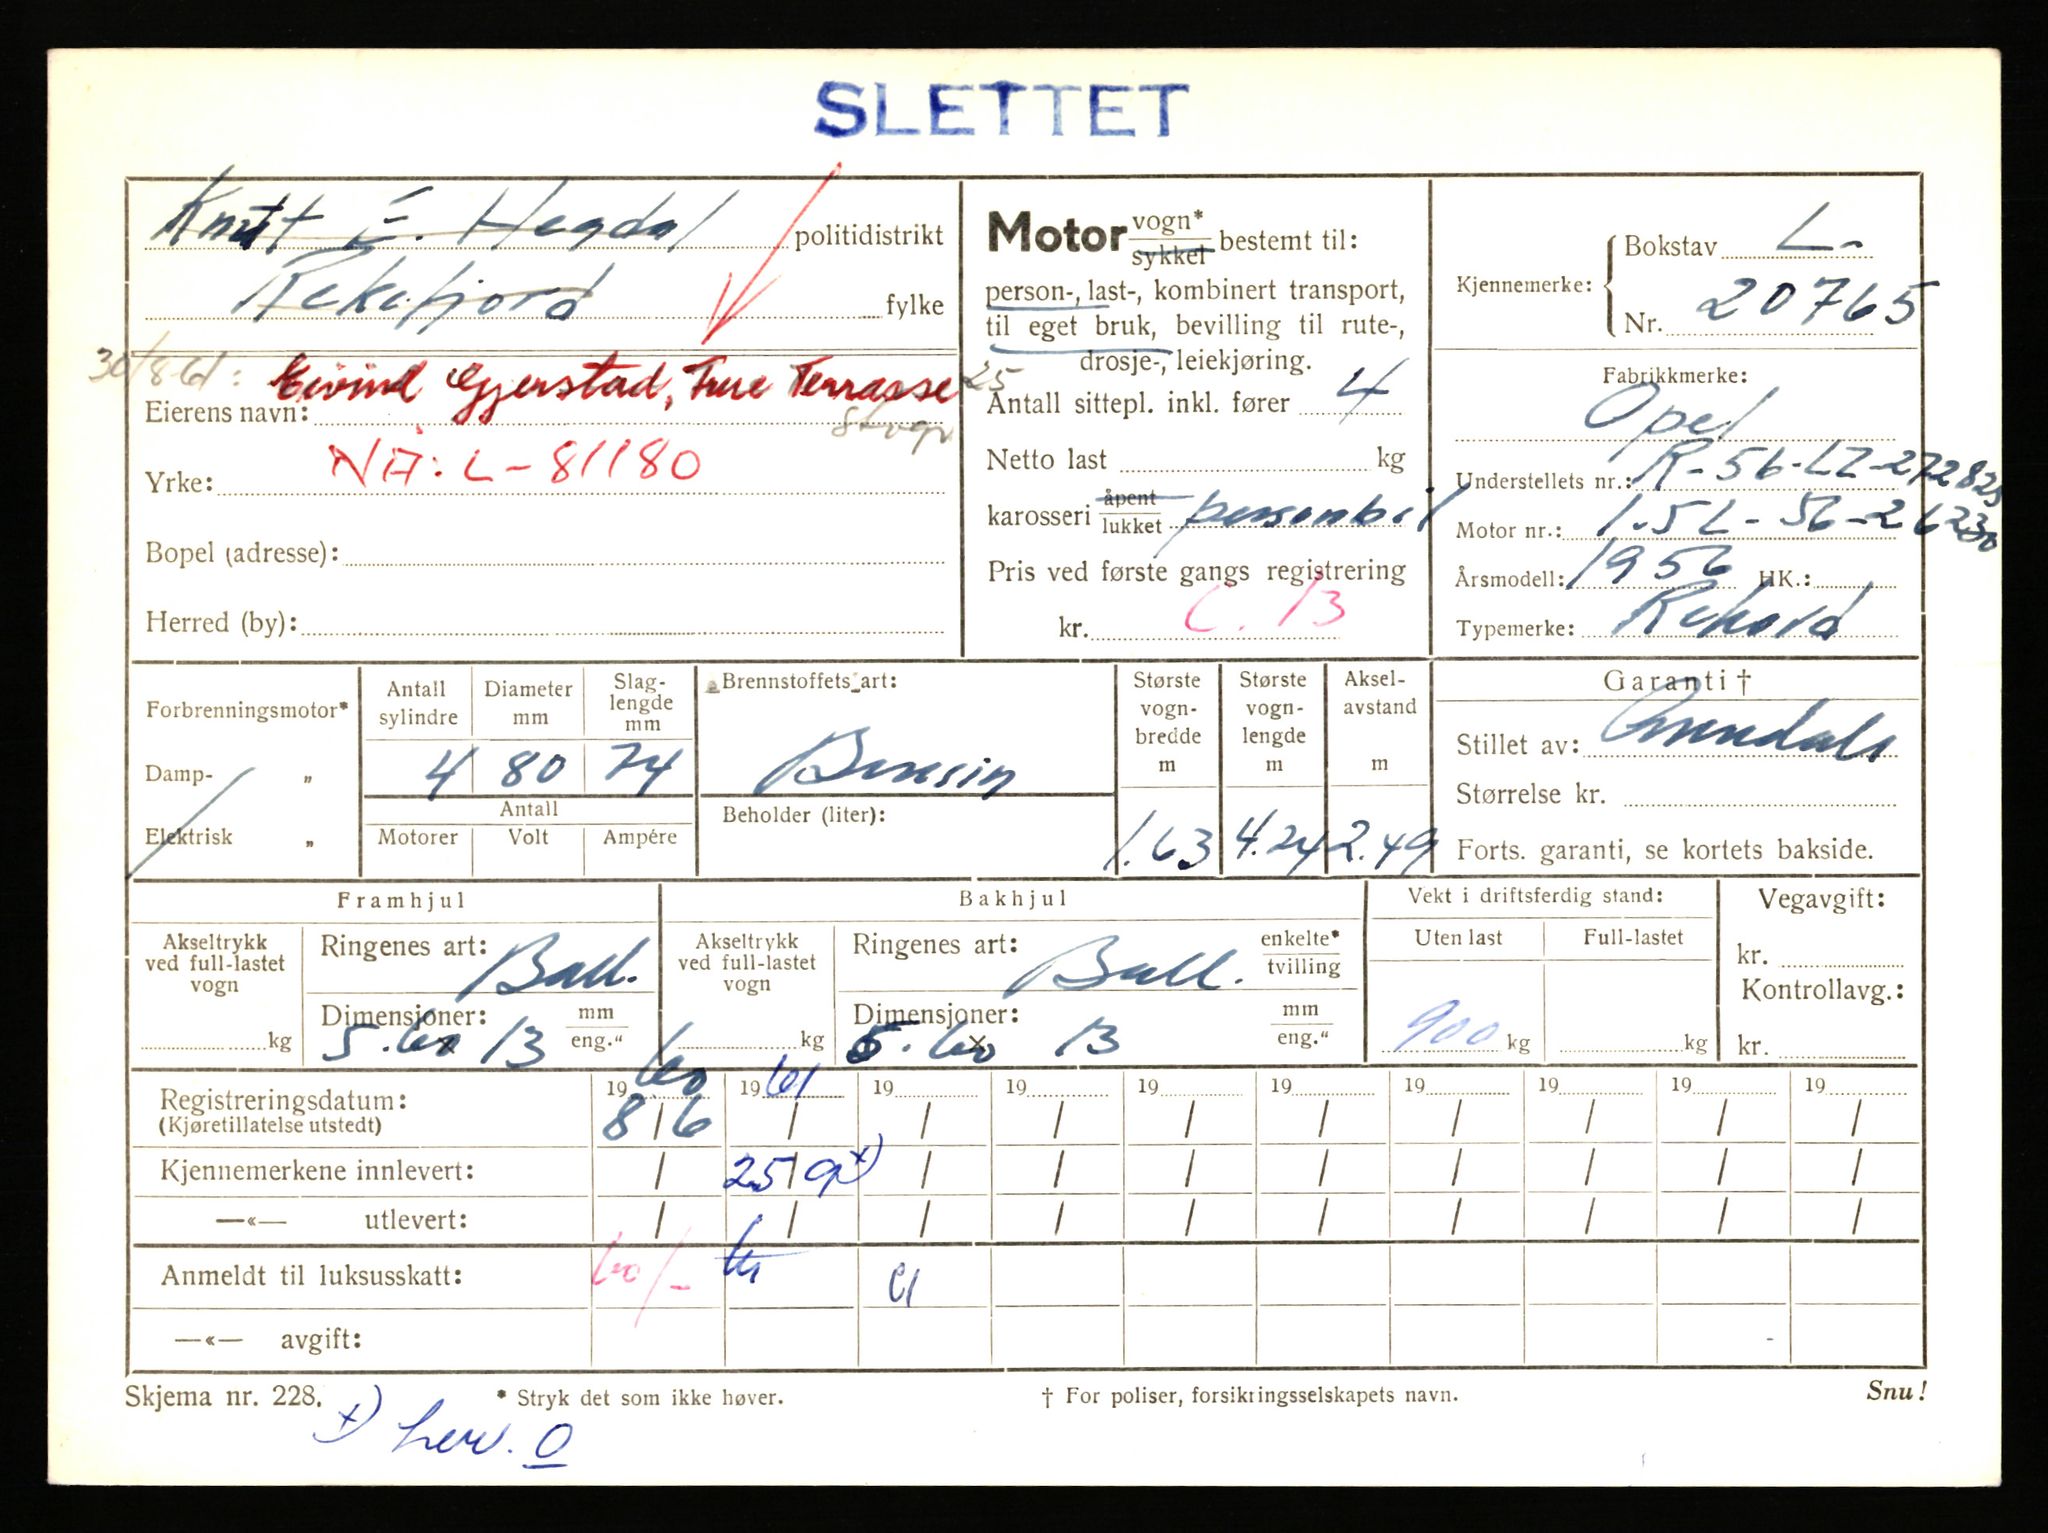 SLETTET
Knut E. Hegdal politidistrikt
Rekefjord fylke
30/8-61: Eivind Gjerstad, Ture Terrasse 25
Eierens navn: Stvgr
Yrke: NÅ: L-81180
Bopel (adresse):
Herred (by):
Motor vogn* / sykkel bestemt til:
person-, last-, kombinert transport,
til eget bruk, bevilling til rute-,
drosje-, leiekjøring.
Antall sittepl. inkl. fører 4
Netto last kg
karosseri åpent / lukket personbil
Pris ved første gangs registrering
kr. C. 13
Kjennemerke: Bokstav L-
Nr. 20765
Fabrikkmerke:
Opel
Understellets nr.: R-56-LZ-272825
Motor nr.: 1.5L-56-26230
Årsmodell: 1956 HK.:
Typemerke: Rekord
Forbrenningsmotor*
Damp- „
Elektrisk „
Antall sylindre Diameter mm Slaglengde mm
4 80 74
Antall
Motorer Volt Ampére
Brennstoffets art:
Bensin
Beholder (liter):
Største vognbredde m Største vognlengde m Akselavstand m
1.63 4.24 2.49
Garanti †
Stillet av: Arendals
Størrelse kr.
Forts. garanti, se kortets bakside.
Framhjul
Akseltrykk ved full-lastet vogn
kg
Ringenes art: Ball.
Dimensjoner: mm / eng."
5.60 x 13
Bakhjul
Akseltrykk ved full-lastet vogn
kg
Ringenes art: Ball. enkelte* / tvilling
Dimensjoner: mm / eng."
5.60 x 13
Vekt i driftsferdig stand:
Uten last Full-lastet
900 kg kg
Vegavgift:
kr.
Kontrollavg.:
kr.
19 60 19 61 19 19 19 19 19 19 19 19
Registreringsdatum: 8/6 / / / / / / / / /
(Kjøretillatelse utstedt)
Kjennemerkene innlevert: / 25/9 x) / / / / / / / /
—«— utlevert: / / / / / / / / / /
Anmeldt til luksusskatt: 60/- 61
—«— avgift:
Skjema nr. 228. * Stryk det som ikke høver. † For poliser, forsikringsselskapets navn. Snu!
x) herv. 0